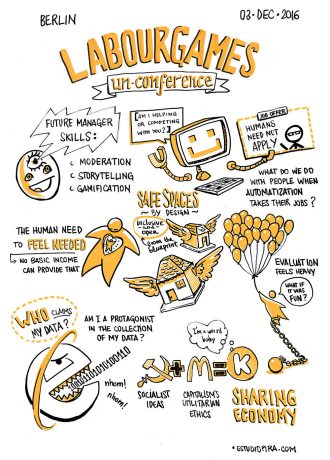 BERLIN
03 • DEC • 2016
LABOURGAMES
un-conference
FUTURE MANAGER
SKILLS:
MODERATION
STORYTELLING
GAMIFICATION
AM I HELPING
OR COMPETING
WITH YOU?
JOB OFFER
HUMANS
NEED NOT
APPLY
WHAT DO WE DO
WITH PEOPLE WHEN
AUTOMATIZATION
TAKES THEIR JOBS?
SAFE SPACES
~ BY DESIGN ~
inclusive
and
open
from the
blueprint
THE HUMAN NEED
TO FEEL NEEDED
NO BASIC INCOME
CAN PROVIDE THAT
EVALUATION
FEELS HEAVY
WHAT IF
IT WAS
FUN?
WHO CLAIMS
MY DATA?
AM I A PROTAGONIST
IN THE COLLECTION
OF MY DATA?
nhom!
nhom!
I'm a weird
baby
+ M = K
SOCIALIST
IDEAS
CAPITALISM'S
UTILITARIAN
ETHICS
SHARING
ECONOMY
• ESTUDIOPIRA.COM